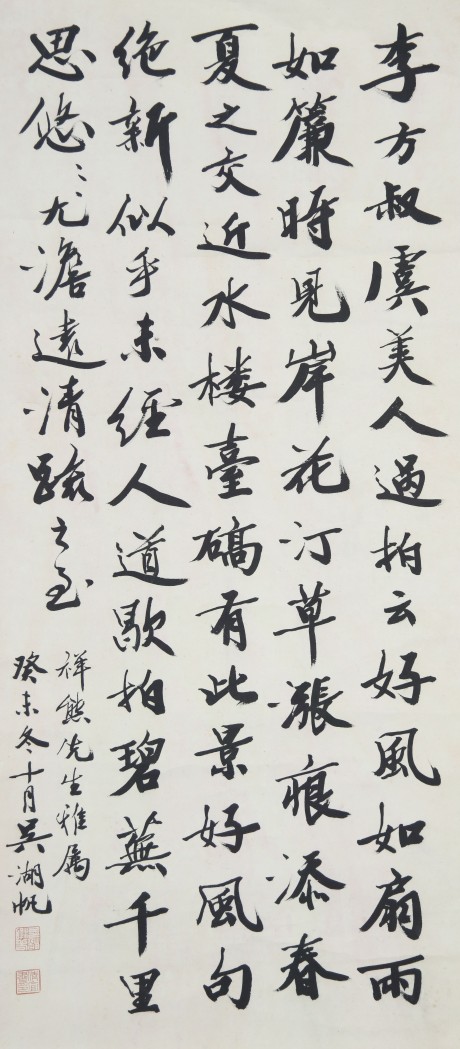 李方叔虞美人過拍云好風如扇雨
如簾時見岸花汀草漲痕添春
夏之交近水楼臺礄有此景好風句
绝新似乎未經人道歇拍碧蕪千里
思悠〻尤澹遠清
祥熊先生雅属
癸未冬十月吴湖帆